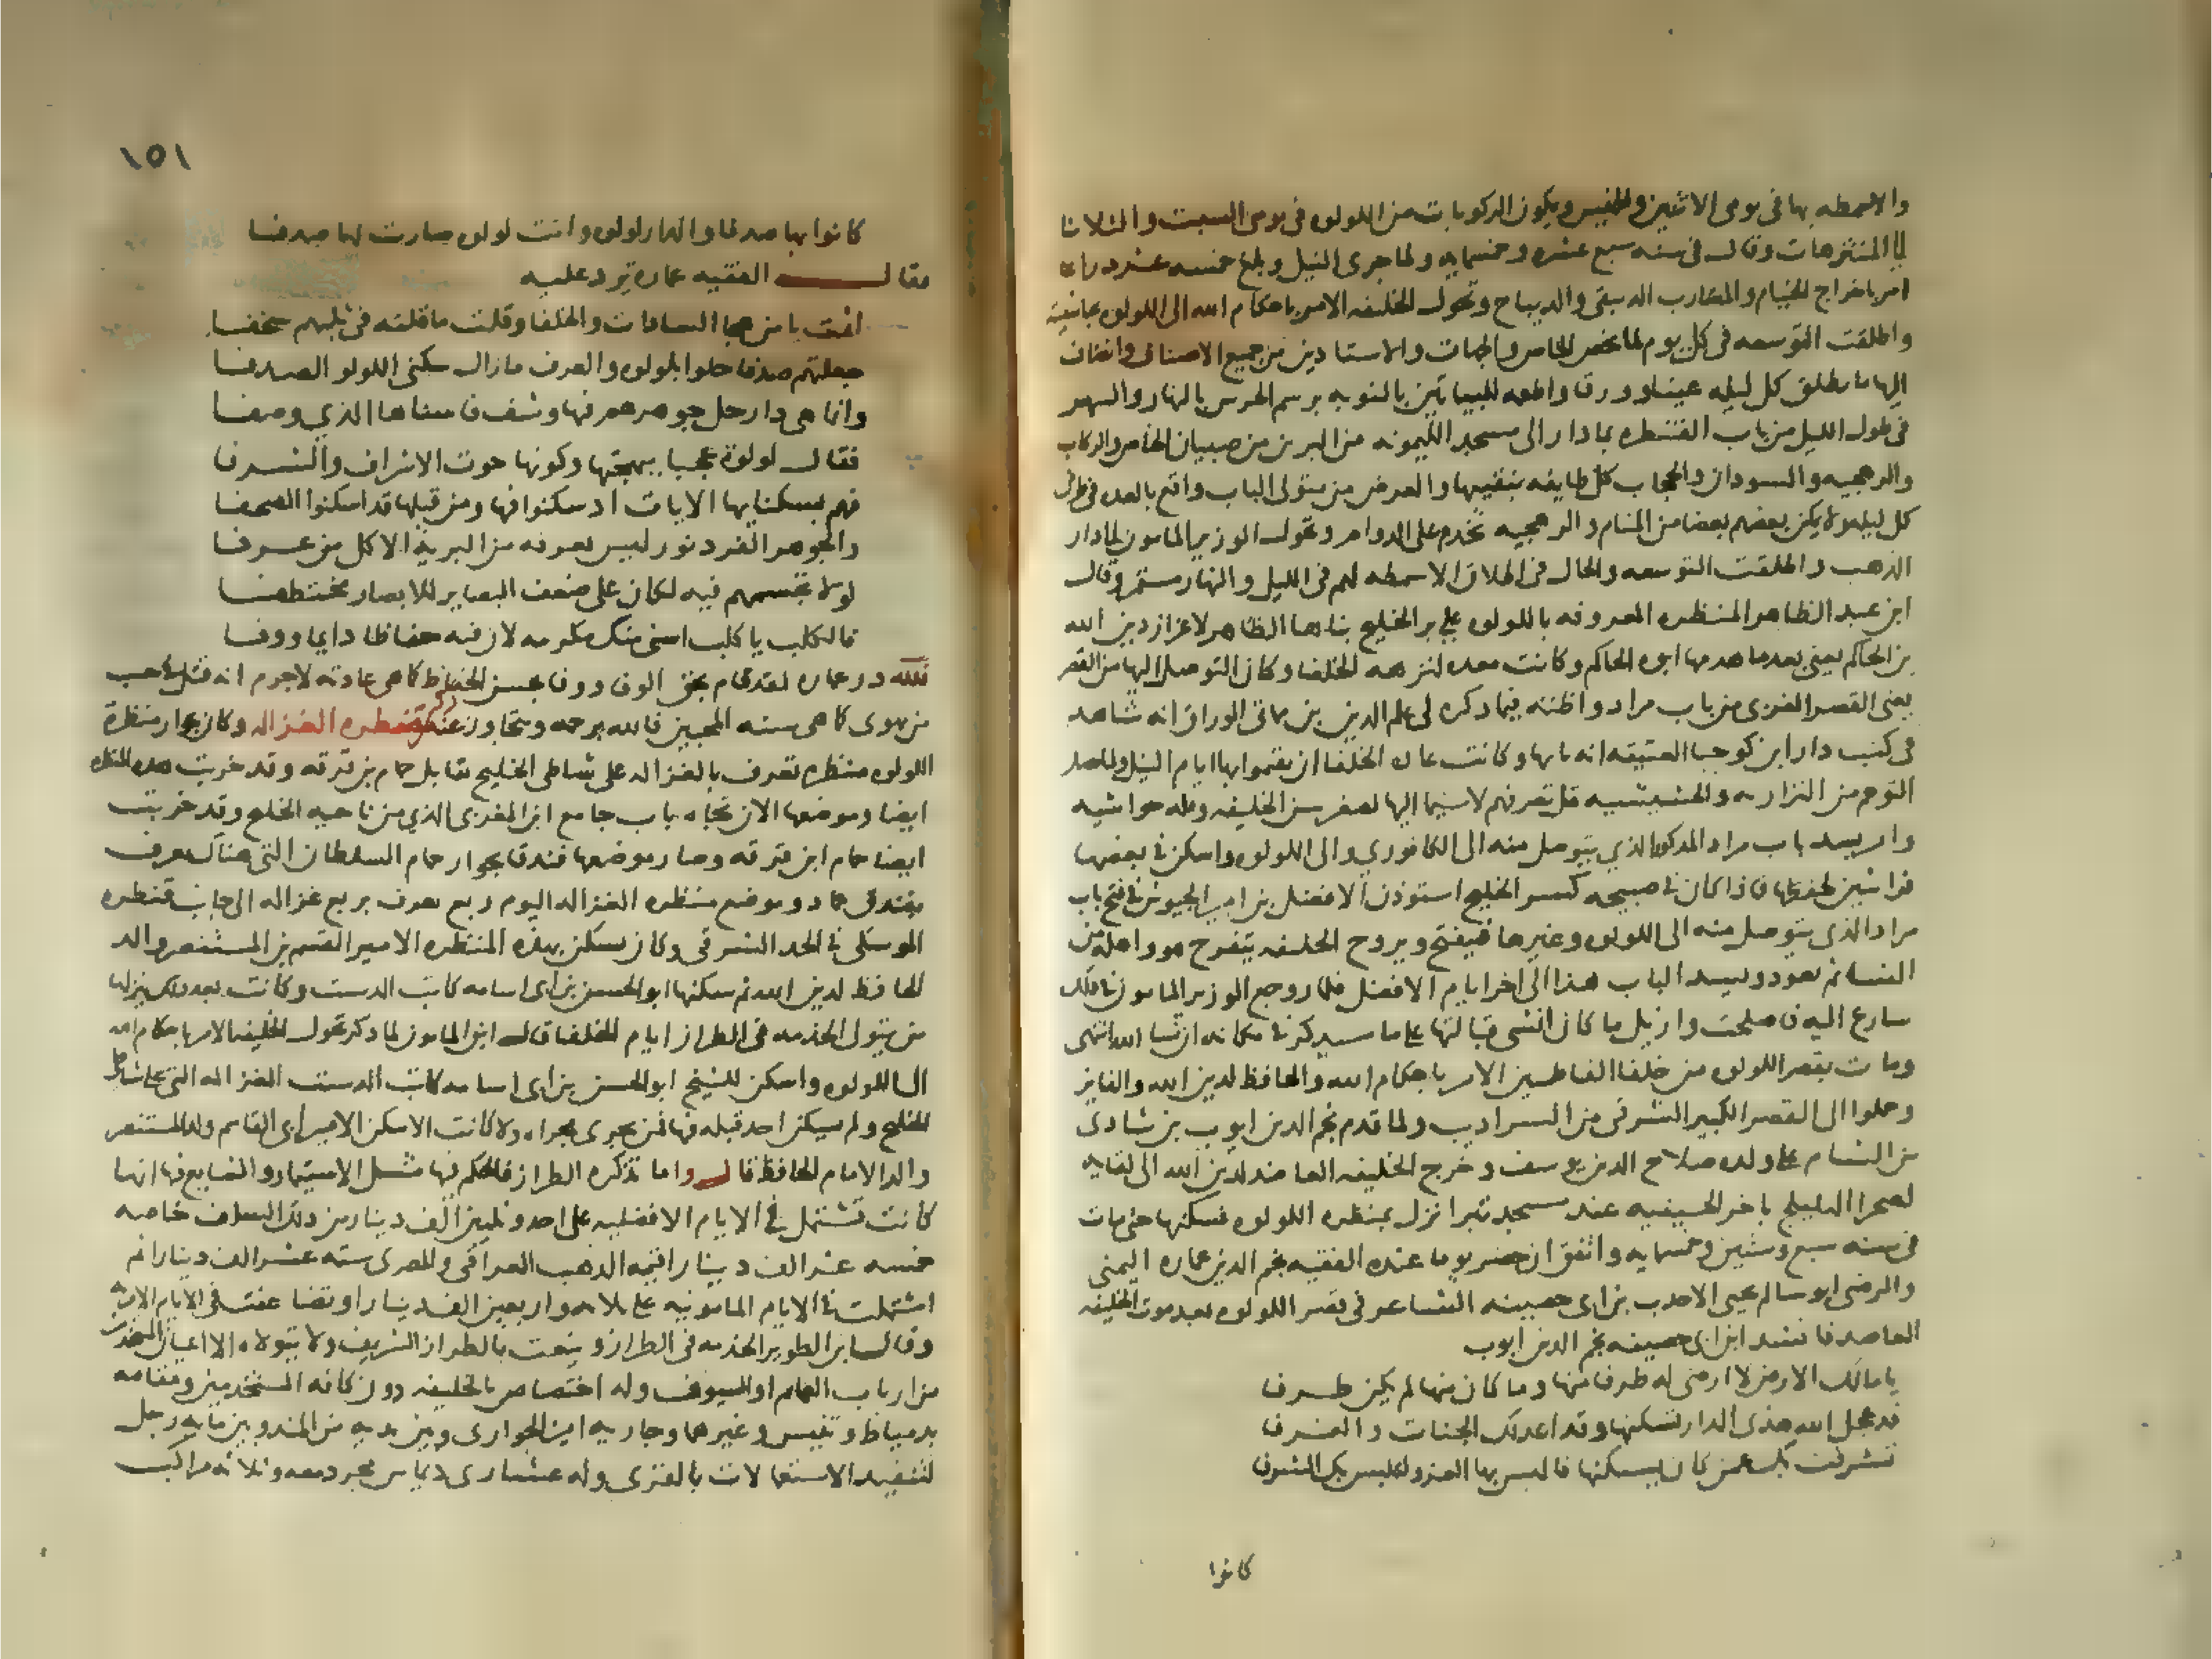 والاسمطه بها فى يومى الاثنين والخميس ويكون الركوبات من اللولوه فى يومى السبت والثلاثا
الى المنتزهات وقال فى سنه سبع عشره وخمسمايه ولما جرى النيل وبلغ خمسه عشر دراعا
امر باخراج الخيام والمضارب الدبيقى والديباج وتحول الخليفه الامر باحكام الله الى اللولوه بحاشيته
واطلقت التوسعه فى كل يوم لما يخص الخاص والجهات والاستادين من جميع الاصناف وانضاف
اليها ما يطلق كل ليله عينا وورقا واطعمه للبياتين بالنوبه برسم الحرس بالنهار والسهر
فى طول الليل من باب القنطره بما دار الى مسجد الليمونه من البرين من صبيان الخاص والركاب
والرهجيه والسودان والحجاب كل طايفه بنقيبها والعرض من متولى الباب واقع بالعده فى طرفى
كل ليله ولا يمكن بعضهم بعضا من المنام والرهجيه تخدم على الدوام وتحول الوزير المامون الى دار
الذهب واطلقت التوسعه والحال فى اطلاق الاسمطه لهم فى الليل والنهار مستمر وقال
ابن عبد الظاهر المنظره المعروفه باللولوه على بر الخليج بناها الظاهر لاعزاز دين الله
بن الحاكم يعنى بعد ما هدمها ابوه الحاكم وكانت معده لنزهه الخلفا وكان التوصل اليها من القصر
يعنى القصر الغربى من باب مراد واظنه فيما دكره لى علم الدين بن مماتى الوراق انه شاهد
فى كتب دار ابن كوجبا العتيقه انه بابها وكانت عاده الخلفا ان يقيموا بها ايام النيل ولما حصد
التوهم من النزاريه والحشيشيه قبل تصرفهم لا سيما اليها لصغر سن الخليفه وقله حواشيه
وامر بسد باب مراد المدكور الذي يتوصل منه الى الكافوري والى اللولوه واسكن فى بعضها
فراشين لحفظها فاذا كان فى صبيحه كسر الخليج استوذن الافضل بن امير الجيوش فى فتح باب
مراد الذى يتوصل منه الى اللولوه وغيرها فيفتح ويروح الخليفه يتفرج هو واهله من
النسا ثم يعود ويسد الباب هذا الى اخر ايام الافضل فلما روجع الوزير المامون فى ذلك
سارع اليه فاصلحت وازيل ما كان انشى قبالتها على ما سيدكر فى مكانه ان شا الله انتهى
ومات بقصر اللولوه من خلفا الفاطميين الامر باحكام الله والحافظ لدين الله والفايز
وحملوا الى القصر الكبير الشرقى من السراديب ولما قدم نجم الدين ايوب بن شادى
من الشام على ولده صلاح الدين يوسف وخرج الخليفه العاضد لدين الله الى لقايه
لصحرا الهليلج باخر الحسينيه عند مسجد تبر انزل بمنظره اللولوه فسكنها حتى مات
فى سنه سبع وستين وخمسمايه واتفق ان حضر يوما عنده الفقيه نجم الدين عماره اليمنى
والرضى ابو سالم يحيى الاحدب بن ابى حصيبه الشاعر فى قصر اللولوه بعد موت الخليفه
العاضد فانشد ابن ابى حصيبه نجم الدين ايوب
يا مالك الارض لا ارضى له طرفا منها وما كان منها لم يكن طرفا
قد عجل الله هذى الدار تسكنها وقد اعد لك الجنات والغرفا
تشرفت بك عمن كان يسكنها فالبس بها العز ولتلبس بك الشرفا
كانوا
١٥١
كانوا بها صدفا والدار لولوه وانت لولوه صارت لها صدفا
فقال الفقيه عماره يرد عليه
اثمت يا من هجا السادات والخلفا وقلت ما قلته فى ثلبهم سخفا
جعلتهم صدفا حلوا بلولوه والعرف مازال سكنى اللولو الصدفا
وانما هى دار حل جوهرهم فيها وشف فاسناها الذي وصفا
فقال لولوة عجبا ببهجتها وكونها حوت الاشراف والشرفا
فهم بسكناهها الايات اد سكنوا فيها ومن قبلها قد اسكنوا الصحفا
والجوهر الفرد نور ليس يعرفه من البرية الا كل من عرفا
لولا تجسمهم فيه لكان على ضعف البصاير للابصار مختطفا
فالكلب يا كلب اسنى منك مكرمه لان فيه حفاظا دايما ووفا
فلله در عماره لقد قام بحق الوفا ووفا بحسن الحفاظ كما هى عادته لا جرم انه قتل فى حب
من يهوى كما هى سنه المحبين فالله يرحمه ويتجاوز عنه منظره الغزاله وكان بجوار منظرة
اللولوه منظره تعرف بالغزاله على شاطى الخليج تقابل حمام بن قرقه وقد خربت هده المنظره
ايضا وموضعها الان تجاه باب جامع ابن المغربى الذي من ناحيه الخليج وقد خربت
ايضا حمام ابن قرقه وصار موضعها فندقا بجوار حمام السلطان التى هناك يعرف
بفندق عماد وموضع منظره الغزاله اليوم ربع يعرف بربع غزاله الى جانب قنطره
الموسكى فى الحد الشرقى وكان يسكن بهذه المنظره الامير القسم بن المستنصر والد
الحافظ لدين الله ثم سكنها ابو الحسن بن ابى اسامه كاتب الدست وكانت بعد ذلك ينزلها
من يتولى الخدمه فى الطراز ايام الخلفا قال ابن المامون لما دكر تحول الخليفه الامر باحكام الله
الى اللولوه واسكن الشيخ ابو الحسن بن ابى اسامه كاتب الدست الغزاله التى على شاطى
الخليج ولم يسكن احد قبله فيها فمن يجرى مجراه ولا كانت الا سكن الامير ابى القاسم ولد المستنصر
والد الامام الحافظ قال واما تذكره الطراز فالحكم فيها مثل الاستيمار والشايع فيها انها
كانت تشتمل فى الايام الافضليه على احد وثلثين الف دينار من ذلك السلف خاصه
خمسه عشر الف دينار قيمه الذهب العراقى والمصرى سته عشر الف دينار ثم
اشتملت فى الايام المامونيه على ثلاثه واربعين الف دينار وتضاعفت فى الايام الامريه
وقال ابن الطوير الخدمه فى الطراز وينعت بالطراز الشريف ولا يتولاه الا اعيان المستخدمين
من ارباب العمايم والسيوف وله اختصاص بالخليفه دون كافه المستخدمين ومقامه
بدمياط وتنيس وغيرهما وجاريه امير الجوارى وبين يديه من المندوبين مايه رجل
لتنفيد الاستعمالات بالقرى وله عشارى دماس مجرد معه وثلاثه مراكب